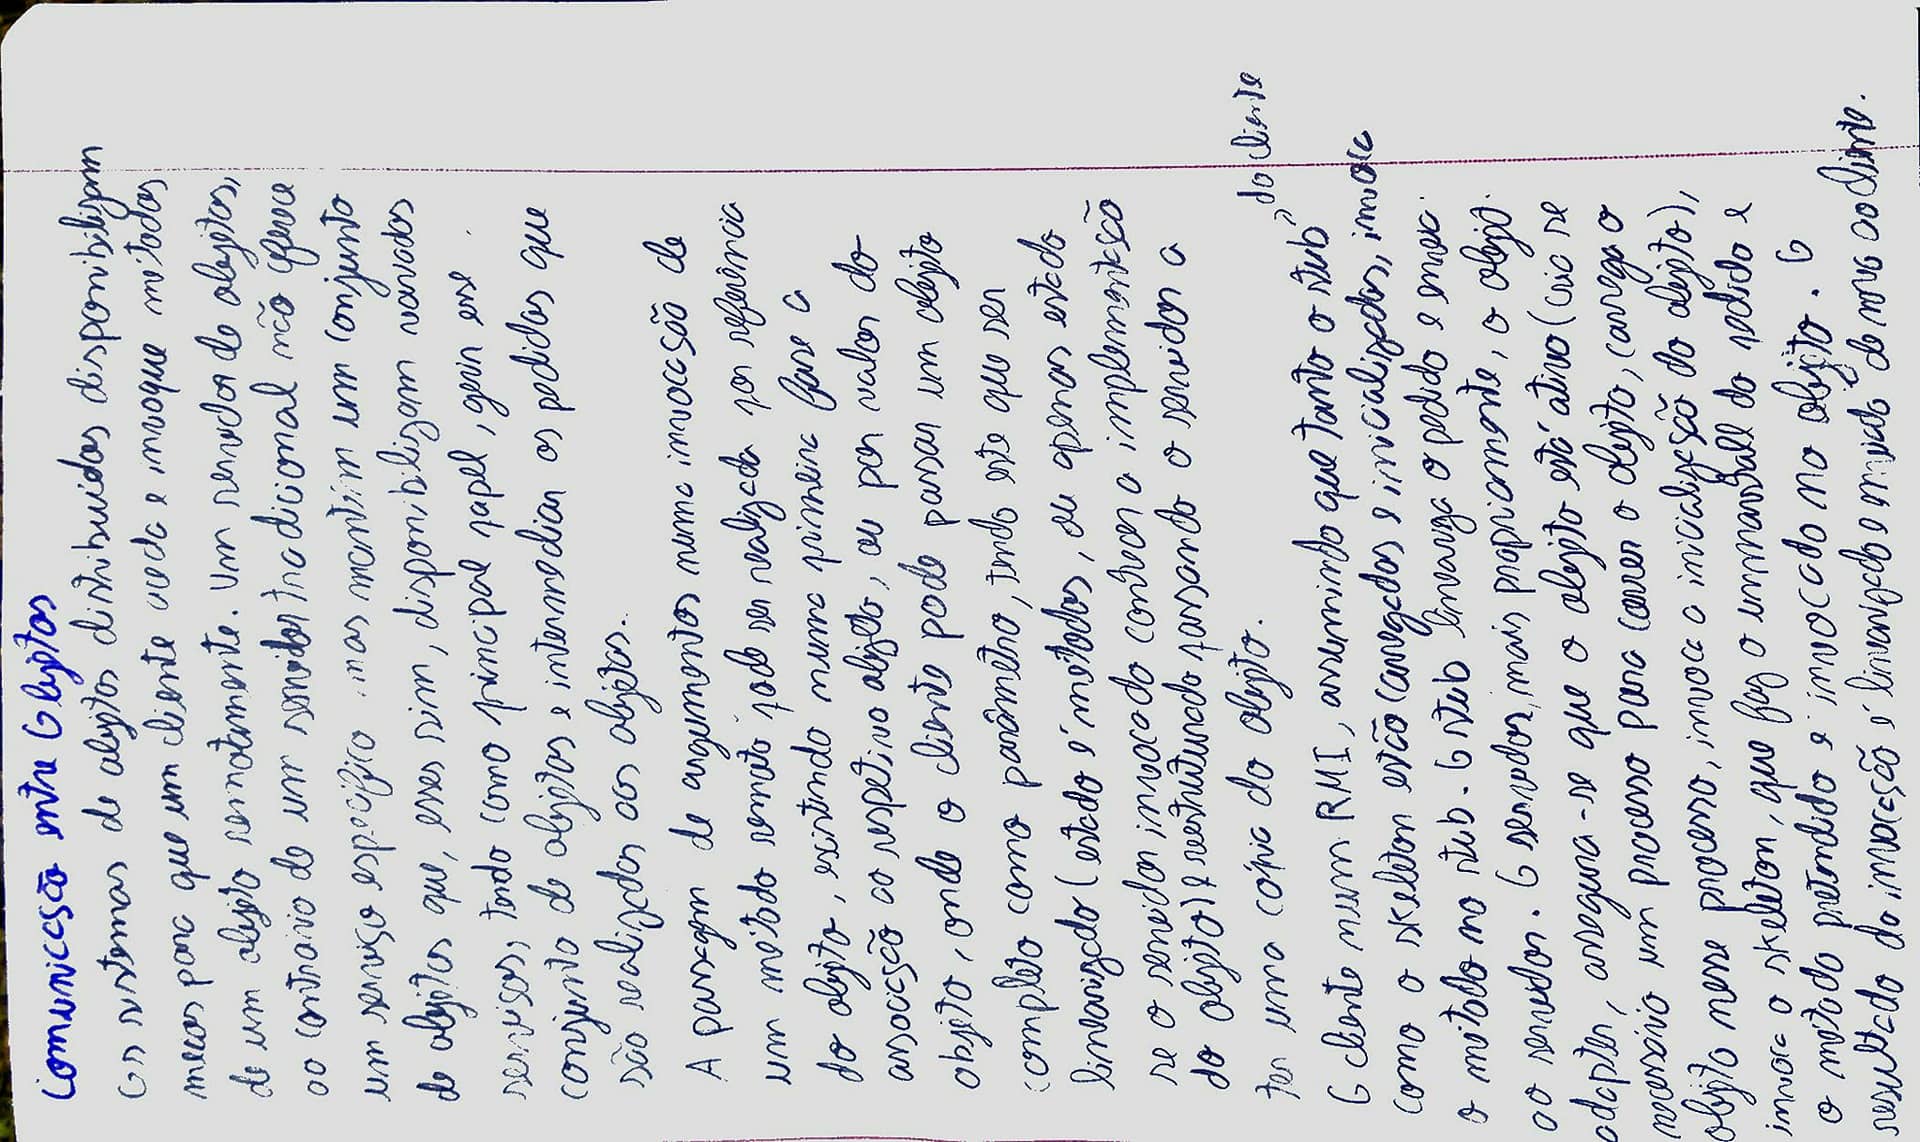 Comunicação entre Objetos
Os sistemas de objetos distribuídos disponibilizam
mecas para que um cliente aceda e invoque métodos
de um objeto remotamente. Um servidor de objetos,
ao contrário de um servidor tradicional não oferece
um serviço específico, mas mantém um conjunto
de objetos que, esses sim, disponibilizam variados
serviços, tendo como principal papel, gerir esse
conjunto de objetos e intermediar os pedidos que
são realizados aos objetos.
A passagem de argumentos numa invocação de
um método remoto pode ser realizada por referência
do objeto, existindo numa primeira fase a
associação ao respetivo objeto, ou por valor do
objeto, onde o cliente pode passar um objeto
completo como parâmetro, tendo este que ser
linearizado (estado e métodos, ou apenas estado
se o servidor invocado conhecer a implementação
do objeto) e reestruturado passando o servidor a
ter uma cópia do objeto.
O cliente num RMI, assumindo que tanto o stub, do cliente
como o skeleton estão carregados e inicializados, invoca
o método no stub. O stub lineariza o pedido e envia
ao servidor. O servidor, mais propriamente, o object
adapter, assegura-se que o objeto está ativo (caso se
necessário um processo para correr o objeto, carrega o
objeto nesse processo, invoca a inicialização do objeto),
invoca o skeleton, que faz o unmarshall do pedido e
o método pretendido é invocado no objeto. O
resultado da invocação é linearizado e enviado de novo ao cliente.